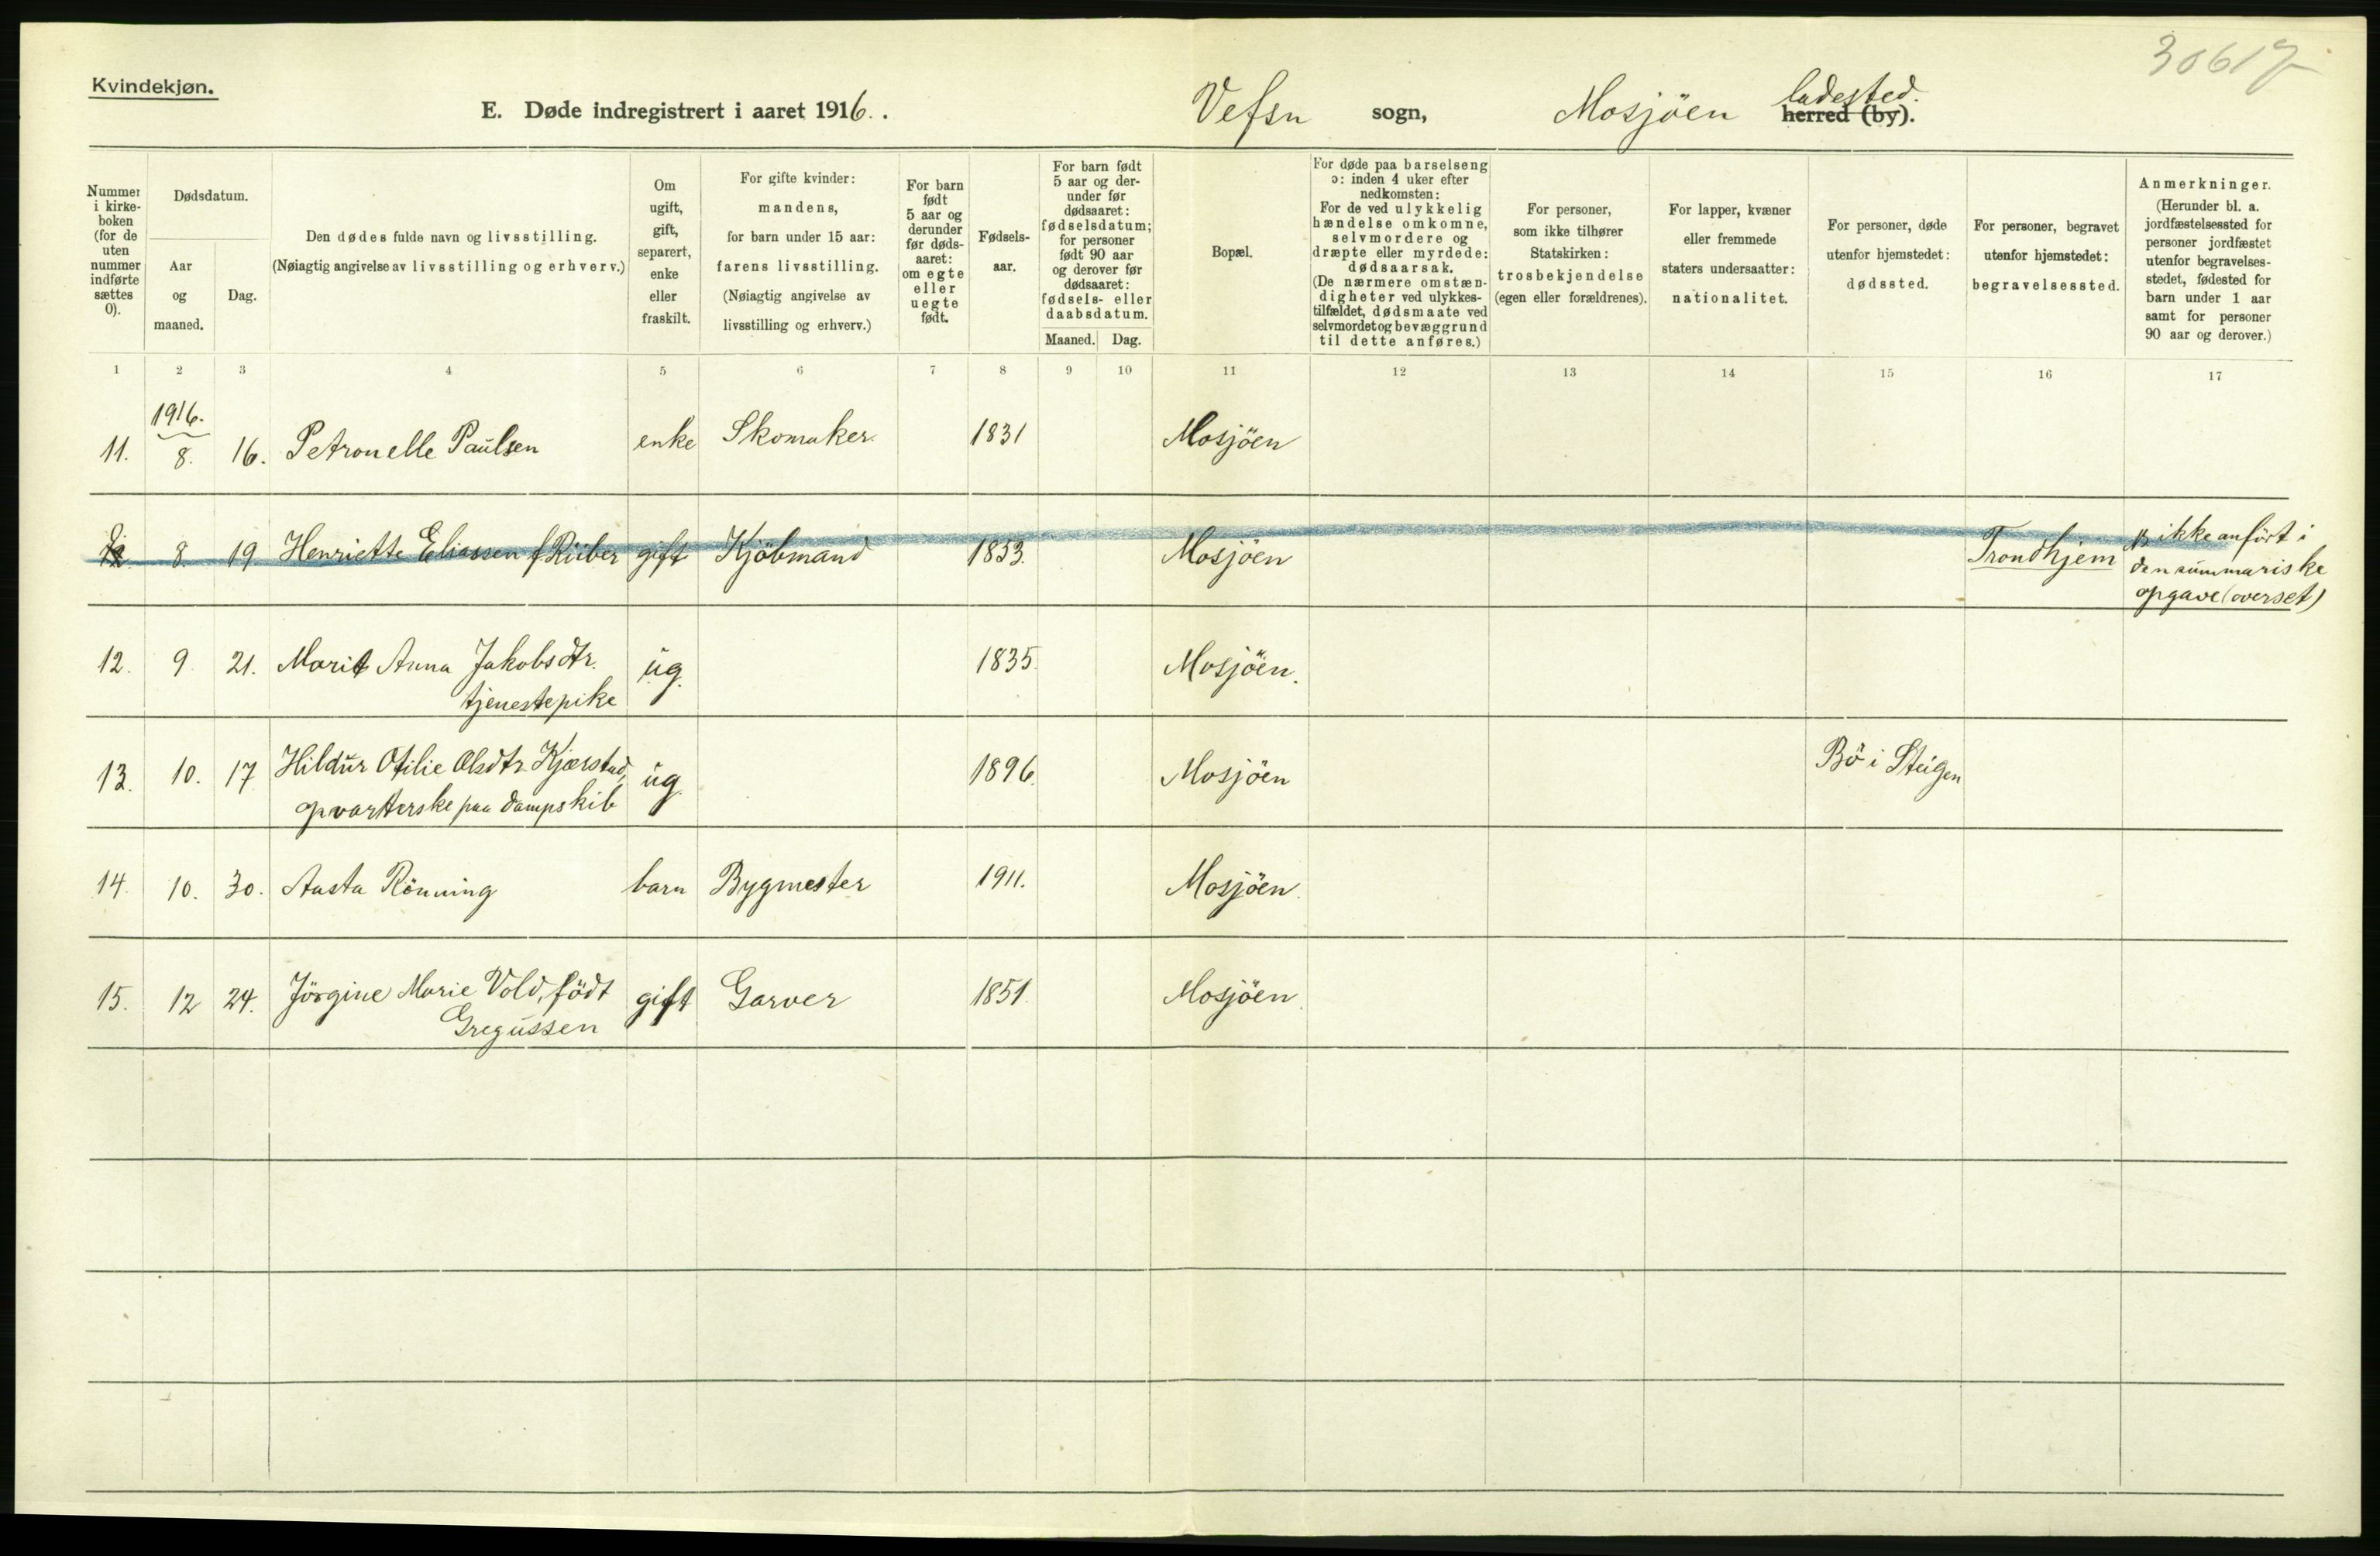 30617
Kvindekjøn.
E. Døde indregistrert i aaret 1916.
Vefsn sogn, Mosjöen ladested.
herred (by).
Nummer
i kirke-
boken
(for de
uten
nummer
indførte
sættes
0).
Dødsdatum.
Aar
og
maaned.
Dag.
Den dødes fulde navn og livsstilling.
(Nøiagtig angivelse av livsstilling og erhverv.)
Om
ugift,
gift,
separert,
enke
eller
fraskilt.
For gifte kvinder:
mandens,
for barn under 15 aar:
farens livsstilling.
(Nøiagtig angivelse av
livsstilling og erhverv.)
For barn
født
5 aar og
derunder
før døds-
aaret:
om egte
eller
uegte
født.
Fødsels-
aar.
For barn født
5 aar og der-
under før
dødsaaret:
fødselsdatum;
for personer
født 90 aar
og derover før
dødsaaret:
fødsels- eller
daabsdatum.
Maaned. Dag.
Bopæl.
For døde paa barselseng
ɔ: inden 4 uker efter
nedkomsten:
For de ved ulykkelig
hændelse omkomne,
selvmordere og
dræpte eller myrdede:
dødsaarsak.
(De nærmere omstæn-
digheter ved ulykkes-
tilfældet, dødsmaate ved
selvmordet og bevæggrund
til dette anføres.)
For personer,
som ikke tilhører
Statskirken:
trosbekjendelse
(egen eller forældrenes).
For lapper, kvæner
eller fremmede
staters undersaatter:
nationalitet.
For personer, døde
utenfor hjemstedet:
dødssted.
For personer, begravet
utenfor hjemstedet:
begravelsessted.
Anmerkninger.
(Herunder bl. a.
jordfæstelsessted for
personer jordfæstet
utenfor begravelses-
stedet, fødested for
barn under 1 aar
samt for personer
90 aar og derover.)
1 2 3 4 5 6 7 8 9 10 11 12 13 14 15 16 17
1916.
11. 8. 16. Petronelle Paulsen enke Skomaker. 1831 Mosjöen
12. 8. 19. Henriette Eliassen f. Riiber gift Kjöbmand 1853. Mosjöen Trondhjem ikke anfört i
den summariske
opgave (overset)
12. 9. 21. Marit Anna Jakobsdtr.
tjenestepike ug. 1835. Mosjöen.
13. 10. 17 Hildur Otilie Olsdtr. Kjærstad,
opvarterske paa dampskib ug. 1896. Mosjöen Bö i Steigen
14. 10. 30. Aasta Rönning barn Bygmester 1911. Mosjöen.
15. 12 24. Jörgine Marie Vold, födt
Gregussen gift Garver 1851. Mosjöen.